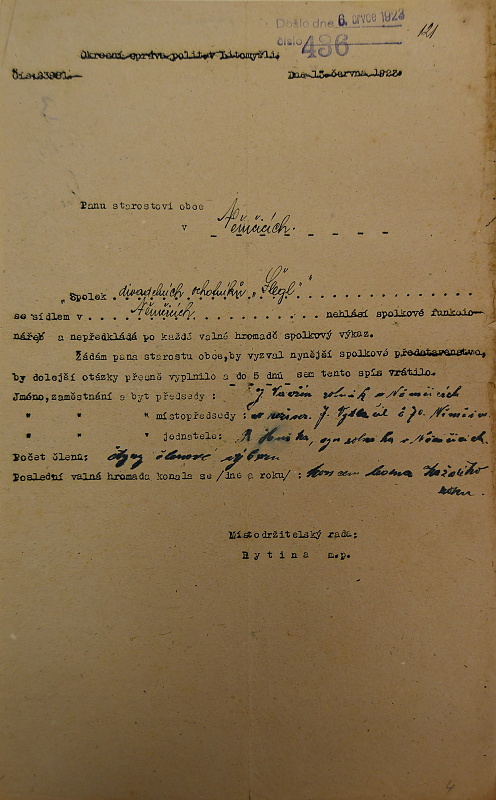 Došlo dne 6. srpce 1923
číslo 486
121
Okresní správa polit. v Litomyšli.
Čís. 23991.
Dne 15. června 1923.
Panu starostovi obce
v Němčicích.
„Spolek divadelních ochotníků „Šlégl"
se sídlem v Němčicích nehlásí spolkové funkcio-
nářeb a nepředkládá po každí valné hromadě spolkový výkaz.
Žádám pana starostu obce, by vyzval nynější spolkové představenstvo,
by dolejší otázky přesně vyplnilo a do 5 dnů sem tento spis vrátilo.
Jméno, zaměstnání a byt předsedy : rolník v Němčicích
" " " místopředsedy : J. v Němčicích
" " " jednatele: v Němčicích.
Počet členů: čtyry členové výboru
Poslední valná hromada konala se /dne a roku/ : koncem každého
roku.
Místodržitelský rada:
Rytina m.p.
4